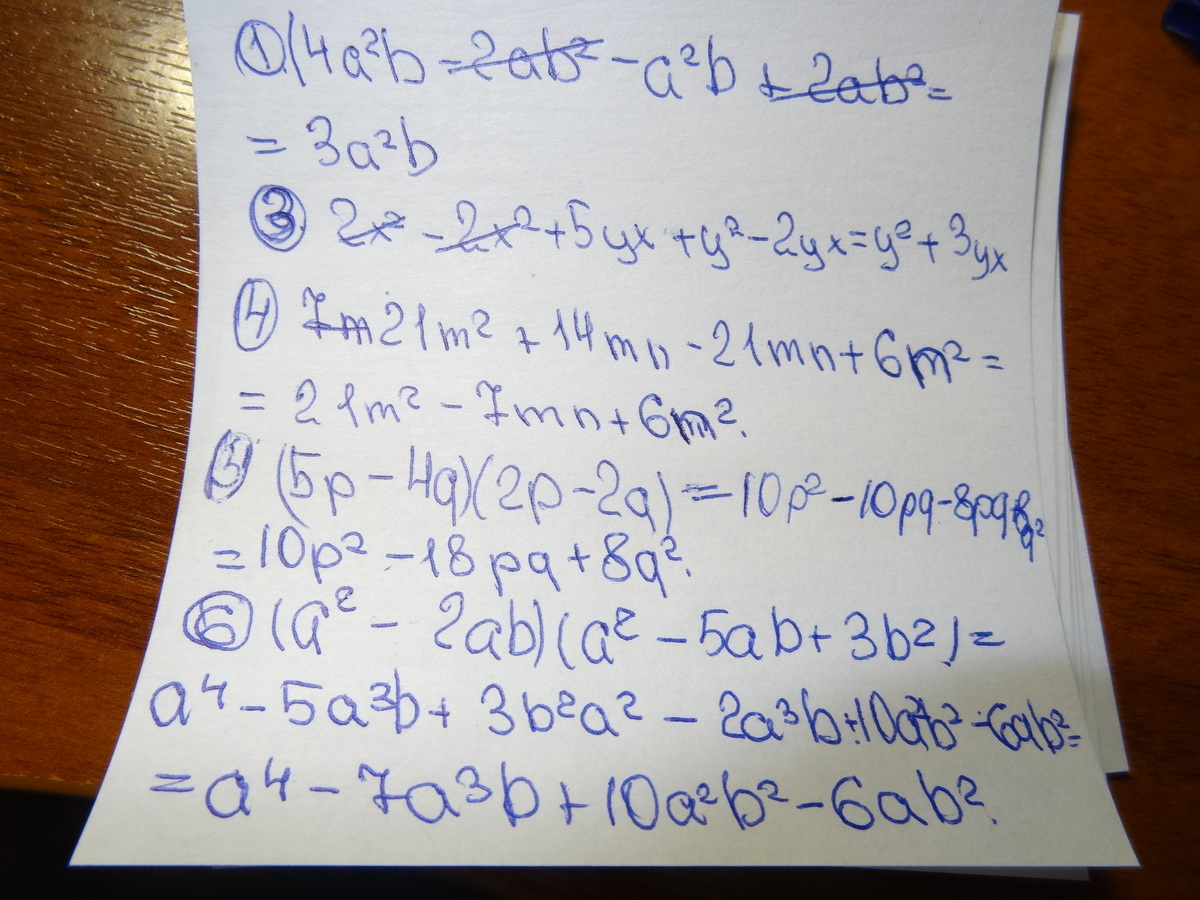 ① (4a²b - 2ab² - a²b + 2ab² =
= 3a²b
③ 2x² - 2x² + 5yx + y² - 2yx = y² + 3yx
④ 7m 21m² + 14mn - 21mn + 6m² =
= 21m² - 7mn + 6m².
⑤ (5p - 4q)(2p - 2q) = 10p² - 10pq - 8pq 8q²
= 10p² - 18pq + 8q².
⑥ (a² - 2ab)(a² - 5ab + 3b²) =
a⁴ - 5a³b + 3b²a² - 2a³b + 10a²b² - 6ab² =
= a⁴ - 7a³b + 10a²b² - 6ab².